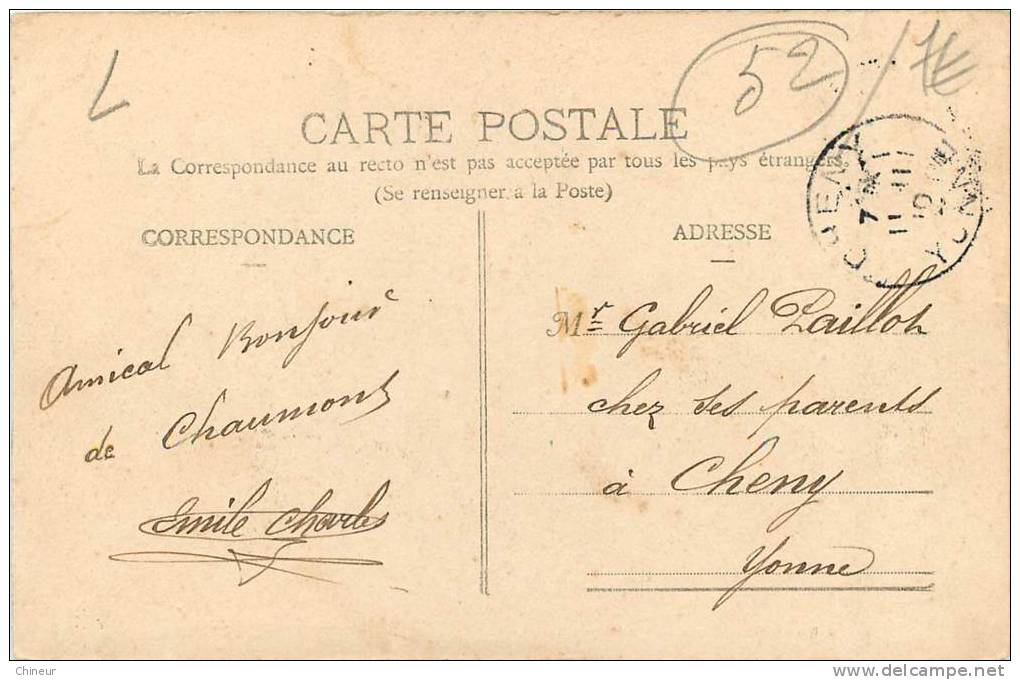 L
52
CARTE POSTALE
La Correspondance au recto n'est pas acceptée par tous les pays étrangers.
(Se renseigner a la Poste)
CORRESPONDANCE
Amical Bonjour
de Chaumont
Emile Charles
ADRESSE
CHENY
YONNE
Mr Gabriel Paillot
chez ses parents
à Cheny
Yonne
Chineur
www.delcampe.net